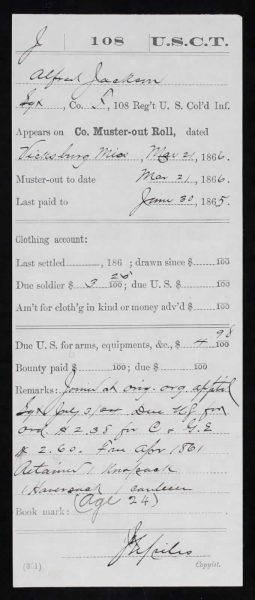 J | 108 | U.S.C.T.
Alfred Jackson
Sgt, Co. F, 108 Reg't U. S. Col'd Inf.
Appears on Co. Muster-out Roll, dated
Vicksburg Miss, Mar 21, 1866.
Muster-out to date Mar 21, 1866.
Last paid to June 30, 1865.
Clothing account:
Last settled , 186 ; drawn since $ 100
Due soldier $ 3 100; due U. S. $ 100
Am't for cloth'g in kind or money adv'd $ 100
Due U. S. for arms, equipments, &c., $ 4 98 100
Bounty paid $ 100; due $ 100
Remarks: Joined at orig. org. apptd
Sgt July 3/64 Due U.S. for
ord $ 2.38 for C & G. E
$ 2.60. Free Apr 1861
Retained 1 Knapsack
1 Haversack 1 canteen
(Age 24)
Book mark:
Copyist.